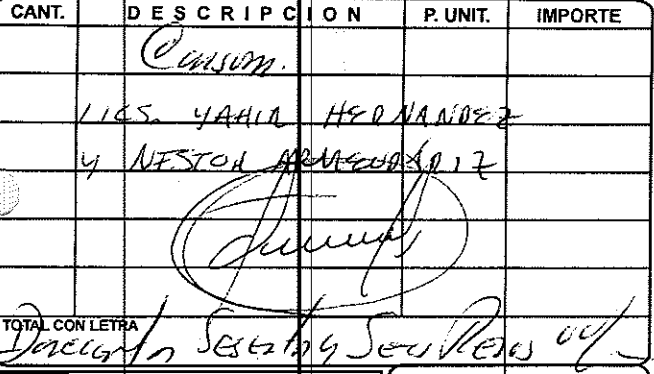 CANT. DESCRIPCION P. UNIT. IMPORTE
Consum.
LICS. YAHIR HERNANDEZ
Y NESTOR ARMENDARIZ
TOTAL CON LETRA
Sesenta y Seis Pesos 00/